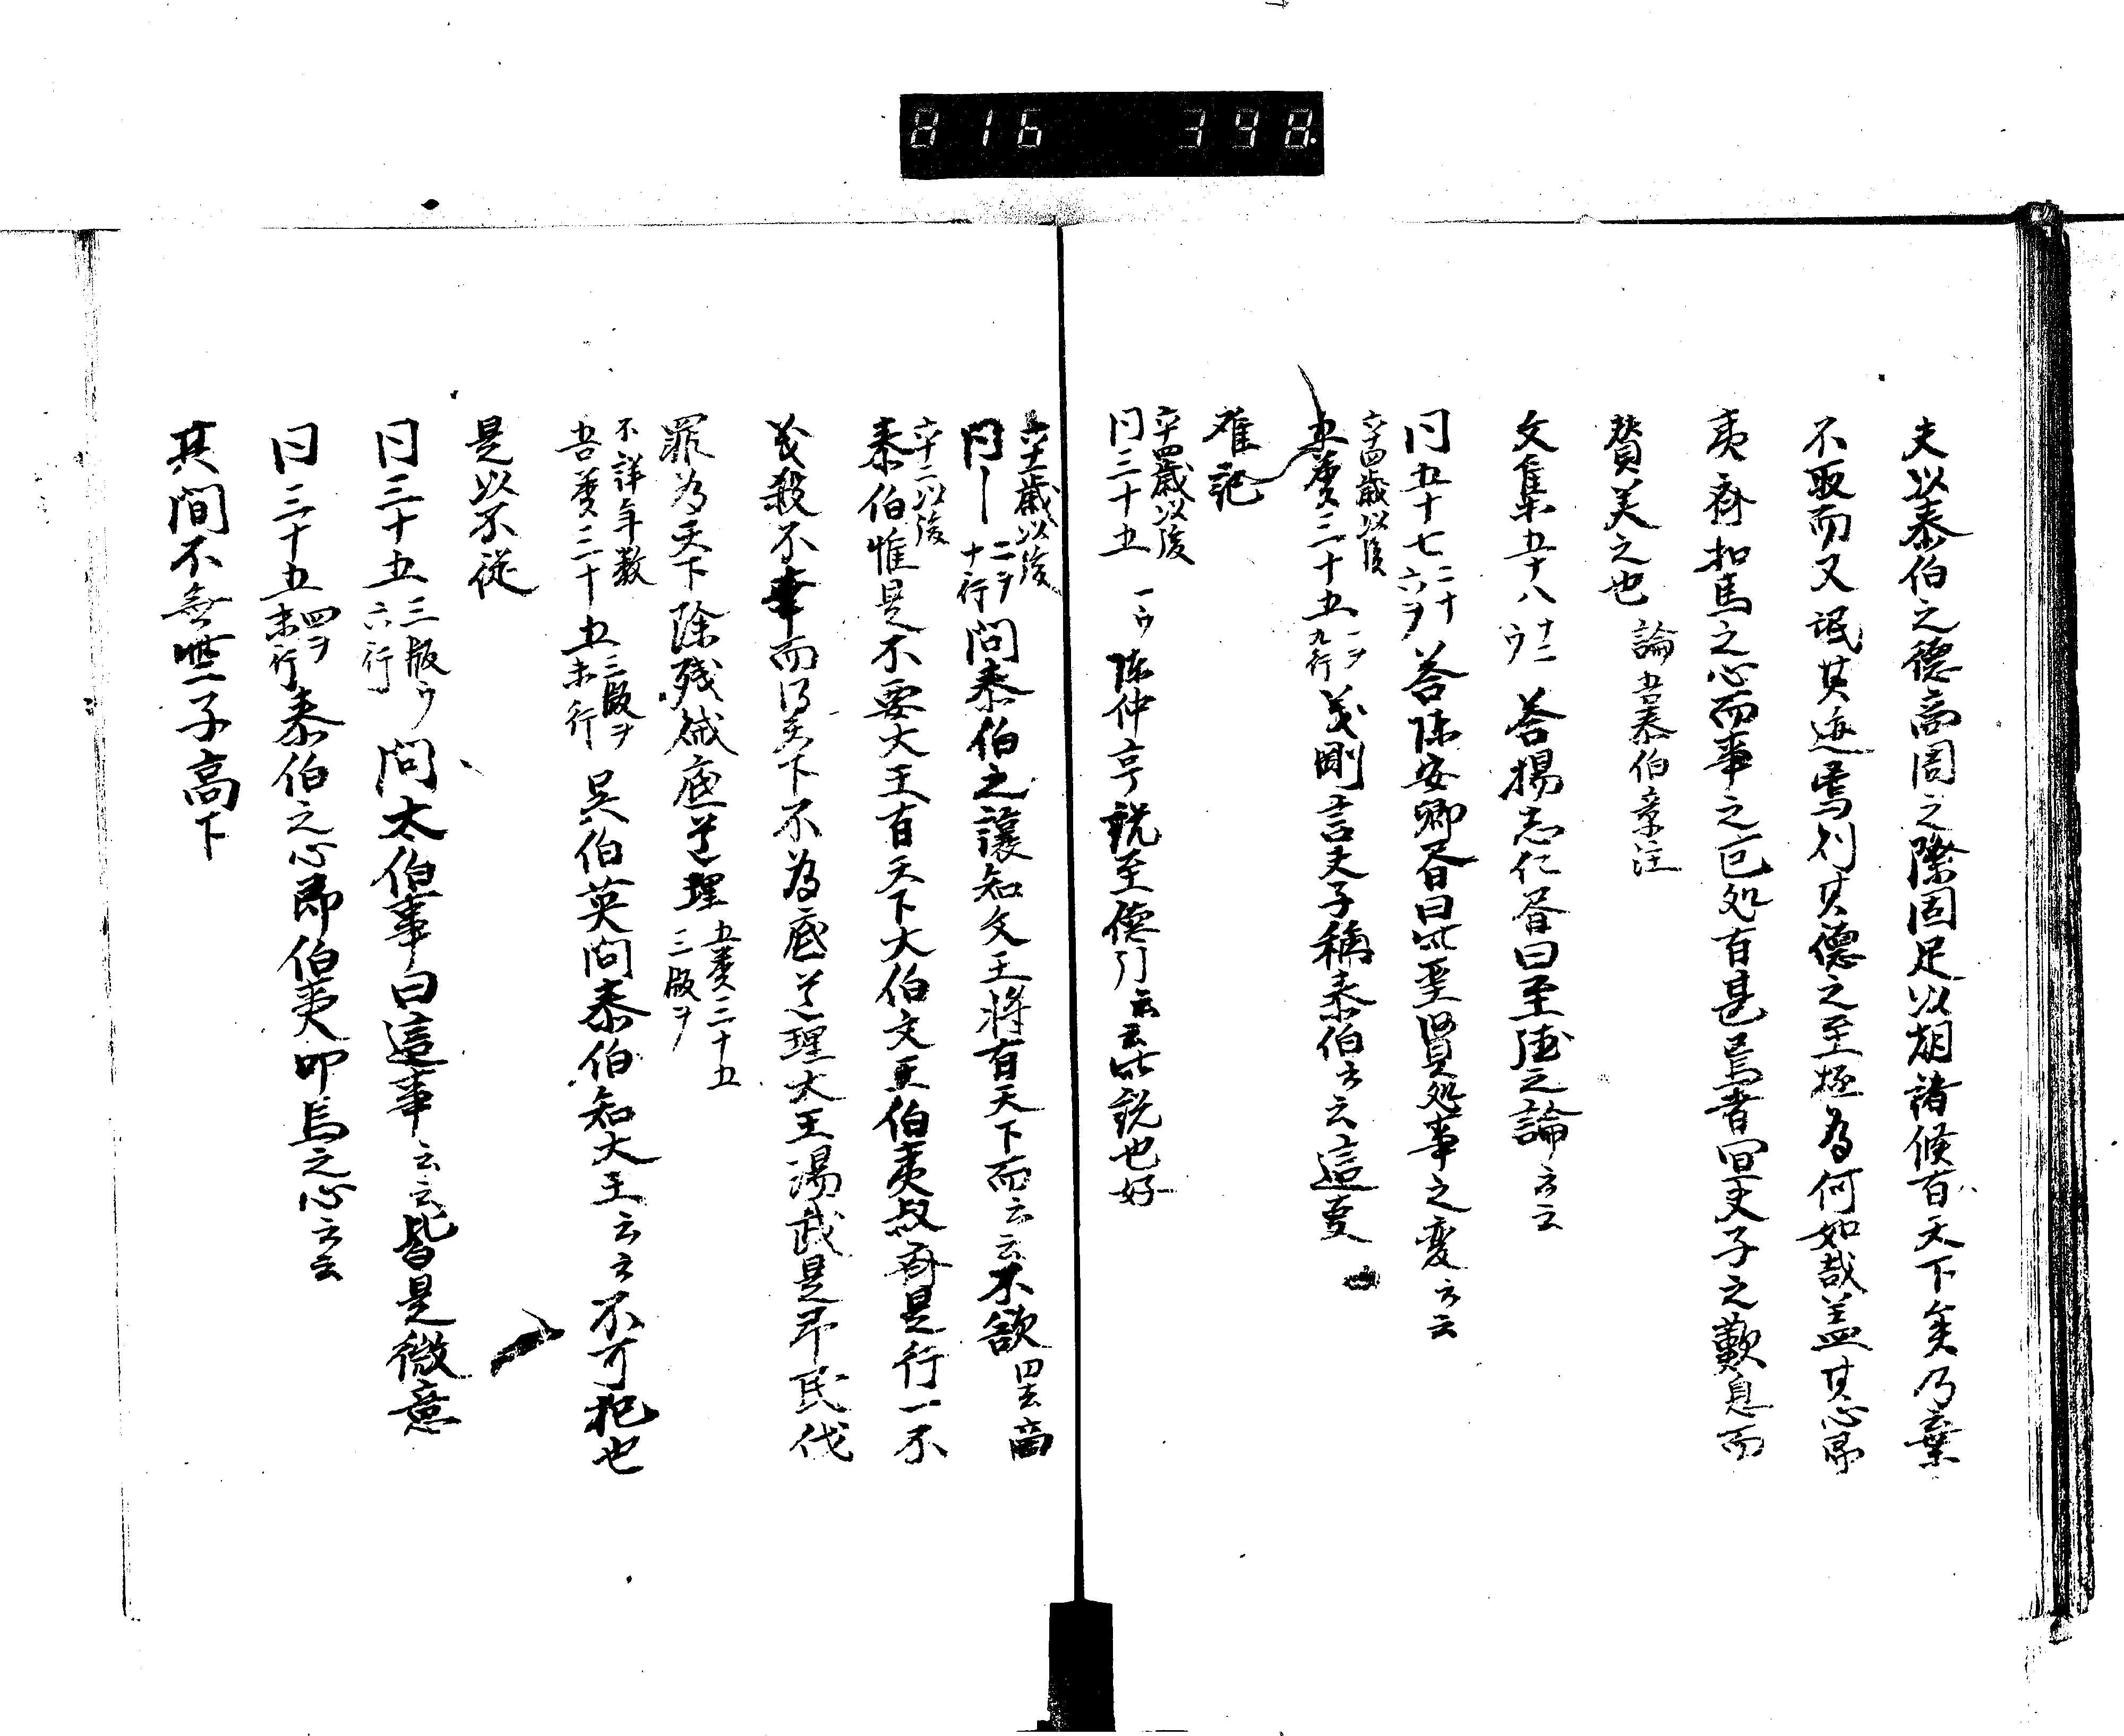 816 398.
夫以泰伯之德商周之際固足以朝諸侯有天下矣乃棄
不取而又泯其迹焉則其德之至極為何如哉蓋其心即
夷齊扣馬之心而事之𠮷処有甚焉者宜夫子之歎息而
賛美之也 論吾泰伯章注
文集五十八 十二ウ 答楊志仁書曰至德之論云云
同五十七 二十六ヲ 答陳安卿書曰此聖賢処事之変云云
六十四歳以後
五類三十五 一ヲ九行 義剛言夫子稱泰伯云云這事
难記
六十四歳以後
同三十五 一ウ 陳仲亨説至德乃云云此説也好
六十一歳以後
同〡 二ヲ十行 問泰伯之讓知文王將有天下而云云不欲
六十二以後
泰伯惟是不要大王有天下大伯文王伯夷叔齊是行一不
義殺不辜而得天下不為底道理大王湯武是吊民伐
罪為天下除残賊底道理 五類三十五 三版ヲ
不詳年数
吾類三十五 三版ヲ末行 吴伯英問泰伯知大王云云不可犯也
是以不從
同三十五 三版ウ六行 問太伯事曰這事云云皆是微意
同三十五 四ヲ末行 泰伯之心即伯夷叩馬之心云云
其間不無些子高下